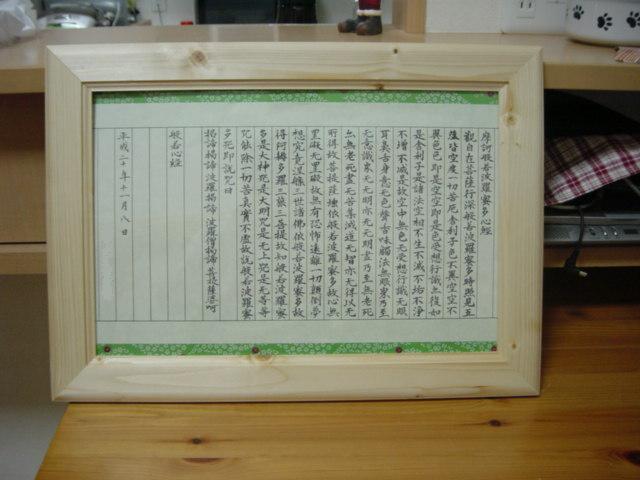 摩訶般若波羅蜜多心經
觀自在菩薩行深般若波羅蜜多時照見五
蘊皆空度一切苦厄舎利子色不異空空不
異色色即是空空即是色受想行識亦復如
是舎利子是諸法空相不生不滅不垢不淨
不増不減是故空中無色无受想行識无眼
耳鼻舌身意无色聲香味觸法無眼界乃至
无意識界无无明亦无无明盡乃至無老死
亦無老死盡无苦集滅道无智亦无得以无
所得故菩提薩埵依般若波羅蜜多故心無
罣礙无罣礙故無有恐怖遠離一切顛倒夢
想究竟涅槃三世諸佛依般若波羅蜜多故
得阿耨多羅三藐三菩提故知般若波羅蜜
多是大神咒是大明咒是无上咒是无等等
咒能除一切苦真實不虛故説般若波羅蜜
多咒即説咒曰
揭諦揭諦波羅揭諦波羅僧揭諦菩提薩婆呵
般若心經
平成二十年十一月八日